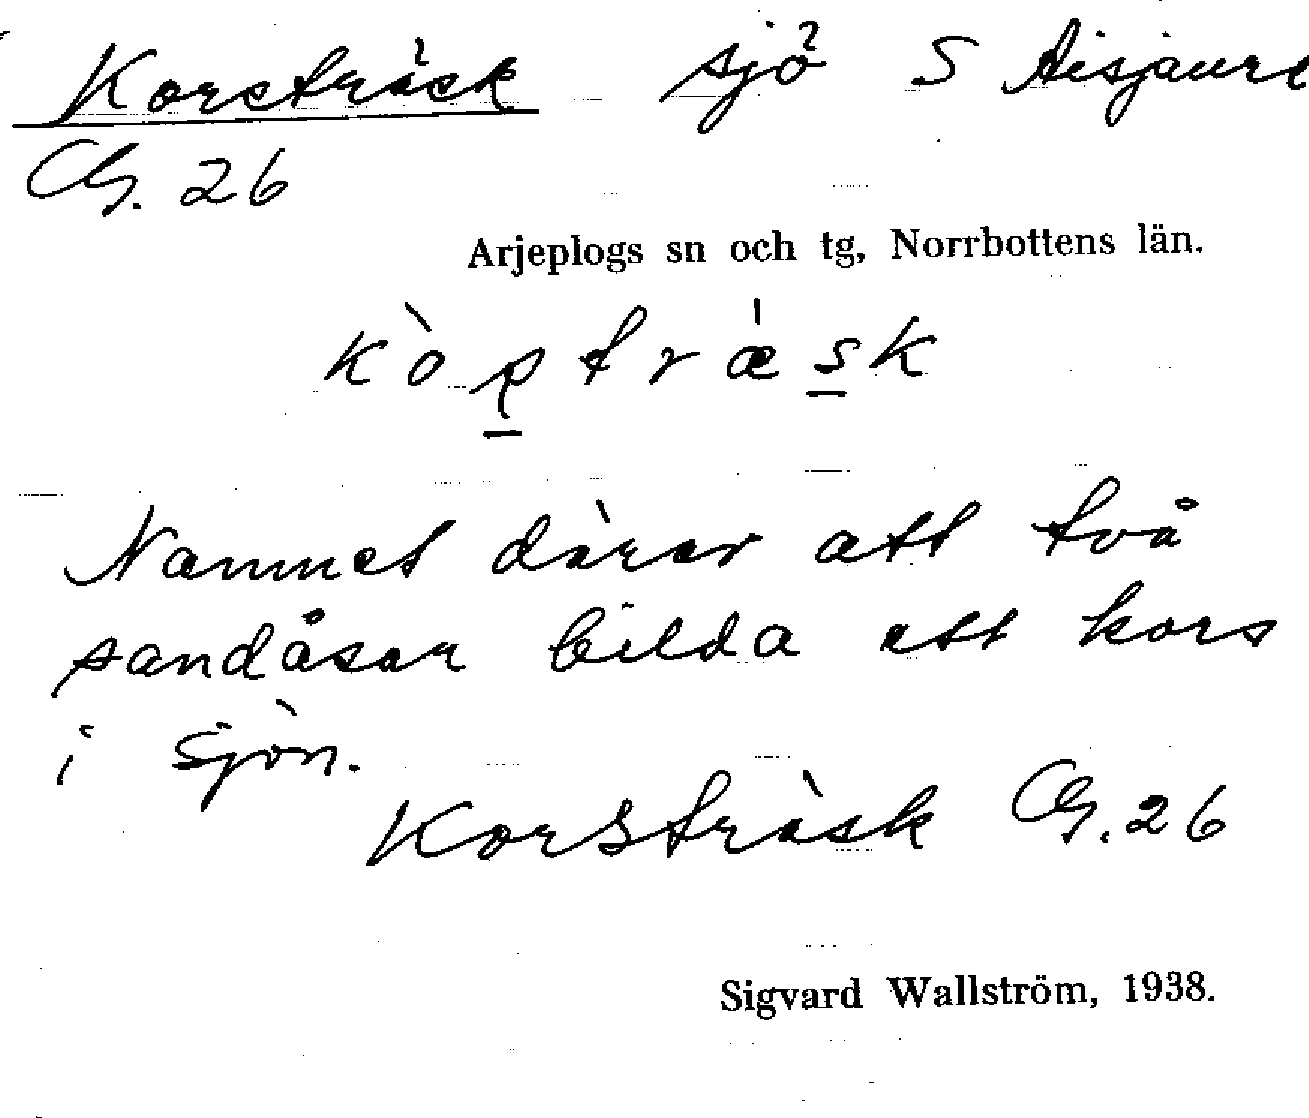 Korsträsk sjö S Aisjaure
CG. 26
Arjeplogs sn och tg, Norrbottens län.
Namnet därav att två
sandåsar bilda ett kors
i sjön.
Korsträsk CG. 26
Sigvard Wallström, 1938.